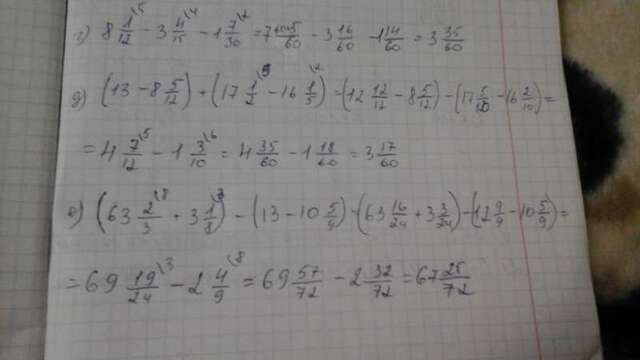 г) 8 1/12 \5 − 3 4/15 \4 − 1 7/30 \2 = 7 65/60 − 3 16/60 − 1 14/60 = 3 35/60
д) (13 − 8 5/12) + (17 1/2 \5 − 16 1/5 \2) − (12 12/12 − 8 5/12) − (17 5/10 − 16 2/10) =
= 4 7/12 \5 − 1 3/10 \6 = 4 35/60 − 1 18/60 = 3 17/60
е) (63 2/3 \8 + 3 1/8 \3) − (13 − 10 5/9) − (63 16/24 + 3 3/24) − (12 9/9 − 10 5/9) =
= 69 19/24 \3 − 2 4/9 \8 = 69 57/72 − 2 32/72 = 67 25/72